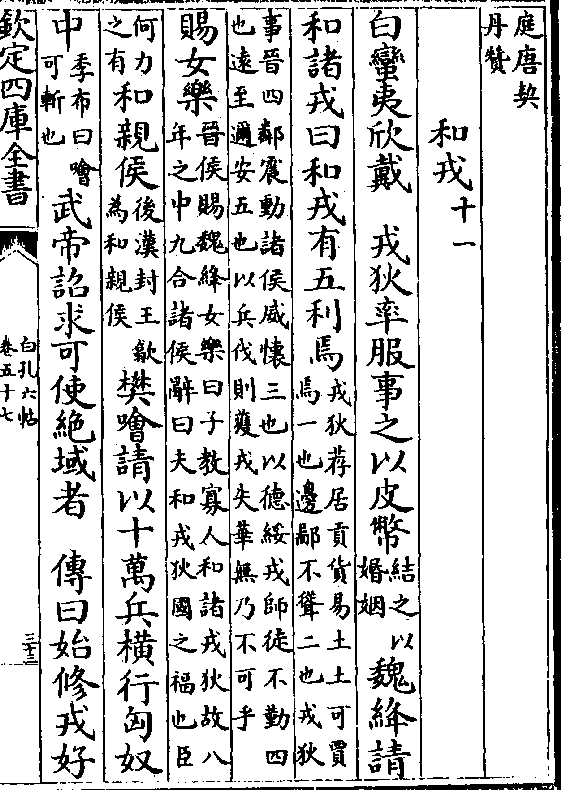 庭唐契
丹贊
和戎十一
白蠻夷欣戴　戎狄率服事之以皮幣
結之以
婚姻
魏絳請
和諸戎曰和戎有五利焉
戎狄荐居貢貨易土土可賈
焉一也邊鄙不聳二也戎狄
事晉四鄰震動諸侯威懷三也以德綏戎師徒不勤四
也遠至邇安五也以兵伐則獲戎失華無乃不可乎
賜女樂
晉侯賜魏絳女樂曰子教寡人和諸戎狄故八
年之中九合諸侯辭曰夫和戎狄國之福也臣
何力
之有
和親侯
後漢封王歙
為和親侯
樊噲請以十萬兵橫行匈奴
中
季布曰噲
可斬也
武帝詔求可使絶域者　傳曰始修戎好
欽定四庫全書
白孔六帖
卷五十七
三十三